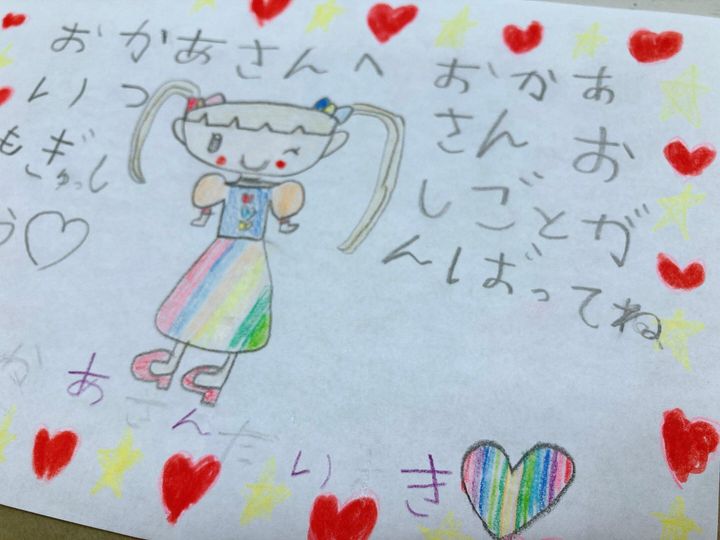 おかあさんへ
おかあ
さん お
しごとが
んばってね
いつ
もぎゅっし
う♡
かあさんだい き